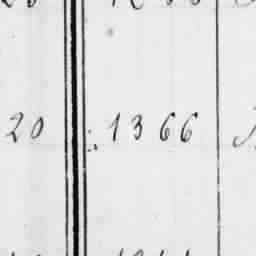 20 1366